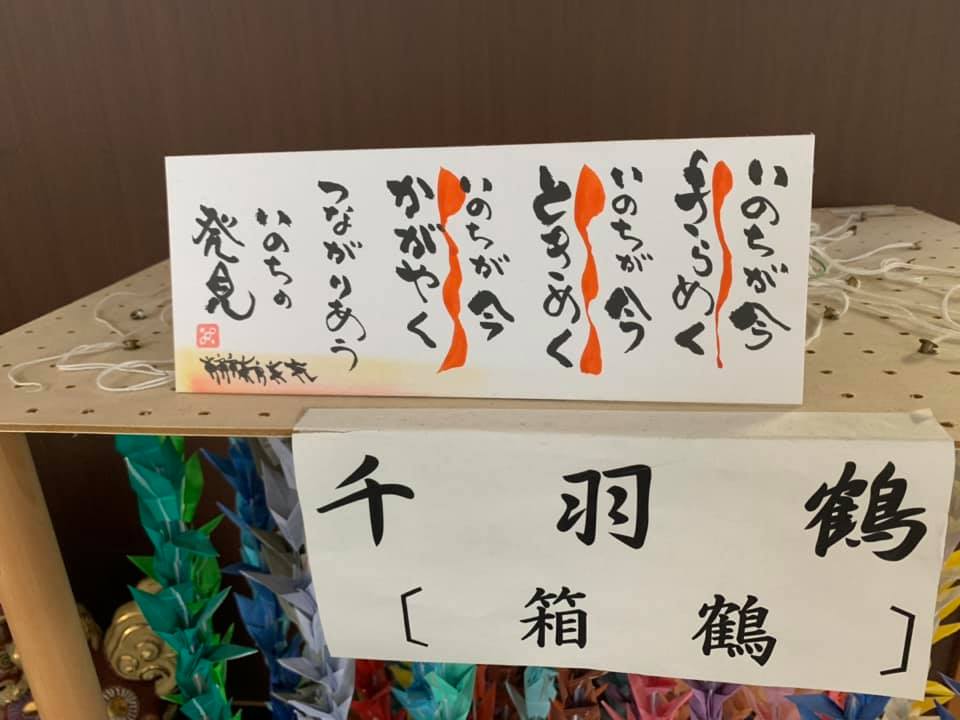 いのちが今
きらめく
いのちが今
ときめく
いのちが今
かがやく
つながりあう
いのちの
発見
千羽鶴
〔箱鶴〕